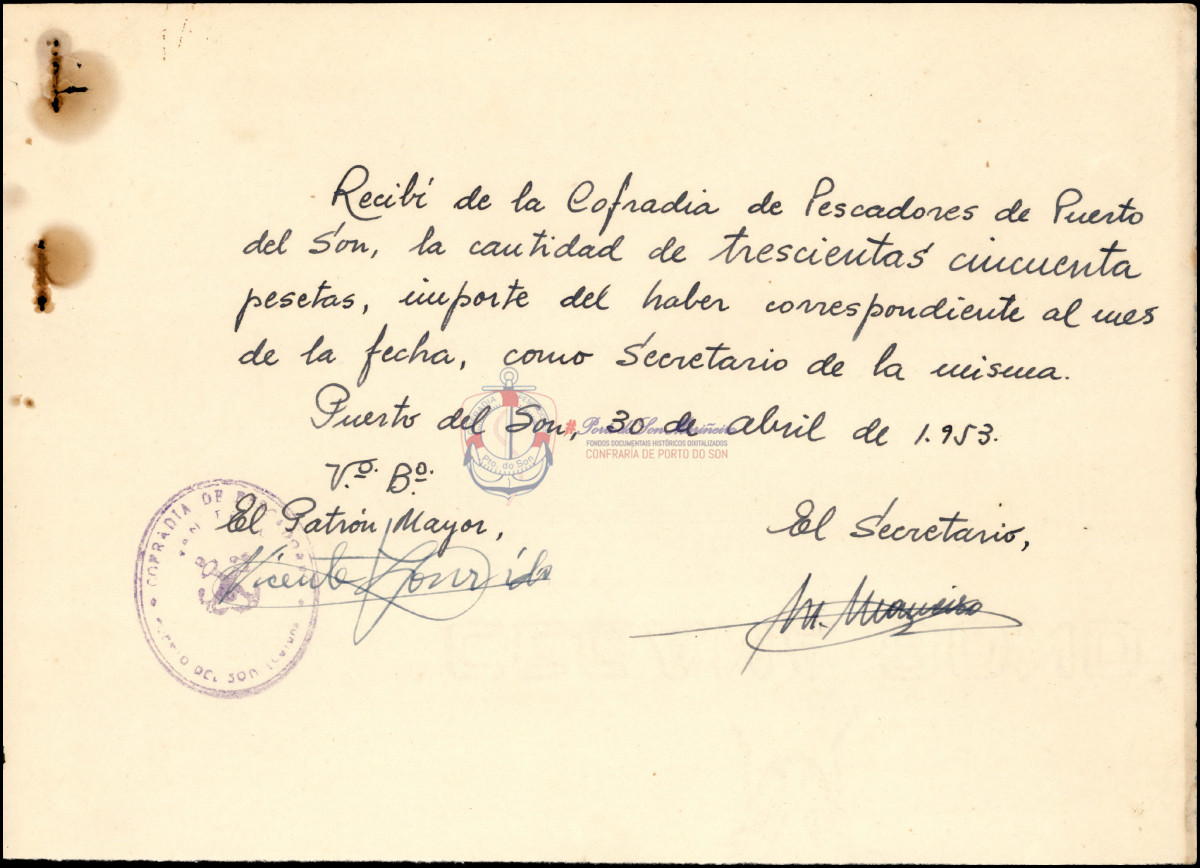 Recibí de la Cofradia de Pescadores de Puerto
del Son, la cantidad de trescientas cincuenta
pesetas, importe del haber correspondiente al mes
de la fecha, como Secretario de la misma.
Puerto del Son, 30 de abril de 1.953.
#Porto do Son Mariñeiro
FONDOS DOCUMENTAIS HISTÓRICOS DIXITALIZADOS
CONFRARÍA DE PORTO DO SON
Pto. do Son
V.º B.º
El Patrón Mayor,
El Secretario,
Vicente
M.
COFRADIA DE
DEL SON